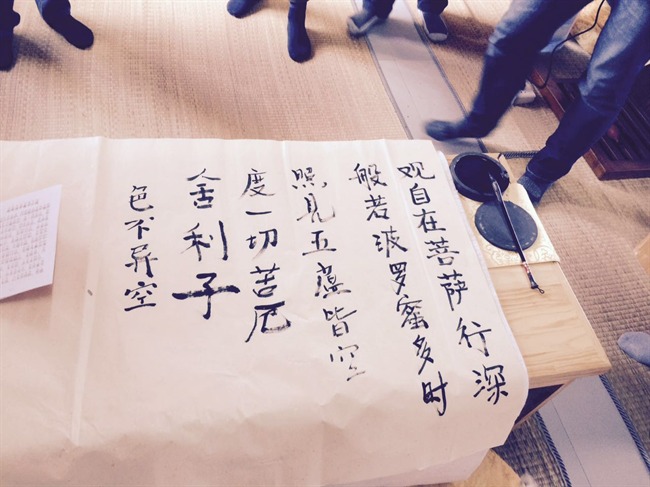 观自在菩萨行深
般若波罗蜜多时
照见五蕴皆空
度一切苦厄
舍利子
色不异空